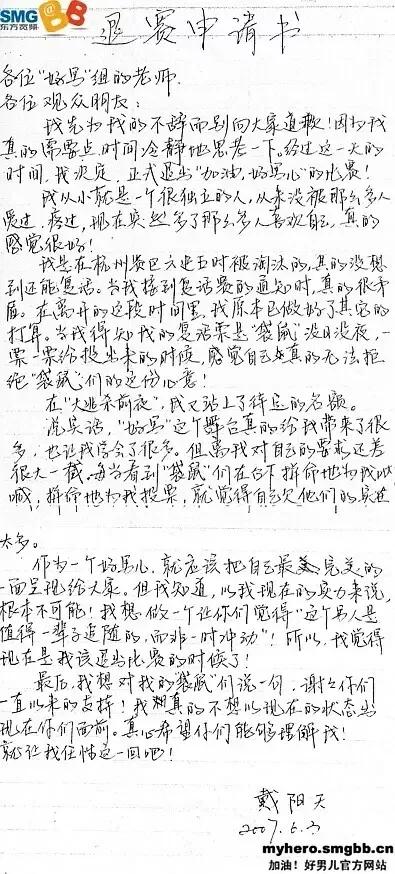 SMG BB
东方宽频
退赛申请书
各位"好男"组的老师
各位观众朋友：
我先为我的不辞而别向大家道歉！因为我
真的需要点时间冷静地思考一下。经过这一天的
时间，我决定，正式退出"加油，好男儿"的比赛！
我从小就是一个很独立的人，从来没被那么多人
爱过，疼过，现在突然多了那么多人喜欢自己，真的
感觉很好！
我是在杭州赛区六进五时被淘汰的，真的没想
到还能复活。当我接到复活赛的通知时，真的很矛
盾。在离开的这段时间里，我原本已做好了其它的
打算。当我得知我的复活票是"袋鼠"没日没夜，一
票一票给投出来的时候，感觉自己真的无法拒
绝"袋鼠"们的这份心意！
在"大逃杀前夜"，我又站上了待定的名额。
说实话，"好男"这个舞台真的给我带来了很
多，也让我学会了很多。但离我对自己的要求还差
很大一截，每当看到"袋鼠"们在台下拼命地为我呐
喊，拼命地为我投票，就觉得自己欠他们的实在
太多。
作为一个好男儿，就应该把自己最美完美的
一面呈现给大家。但我知道，以我现在的实力来说，
根本不可能！我想做一个让你们觉得"这个男人是
值得一辈子追随的，而非一时冲动"！所以，我觉得
现在是我该退出比赛的时候了！
最后，我想对我的"袋鼠"们说一句，谢谢你们
一直以来的支持！我真的不想以现在的状态出
现在你们面前。真心希望你们能够理解我！
就让我任性这一回吧！
戴阳天
2007.6.3
myhero.smgbb.cn
加油！好男儿官方网站